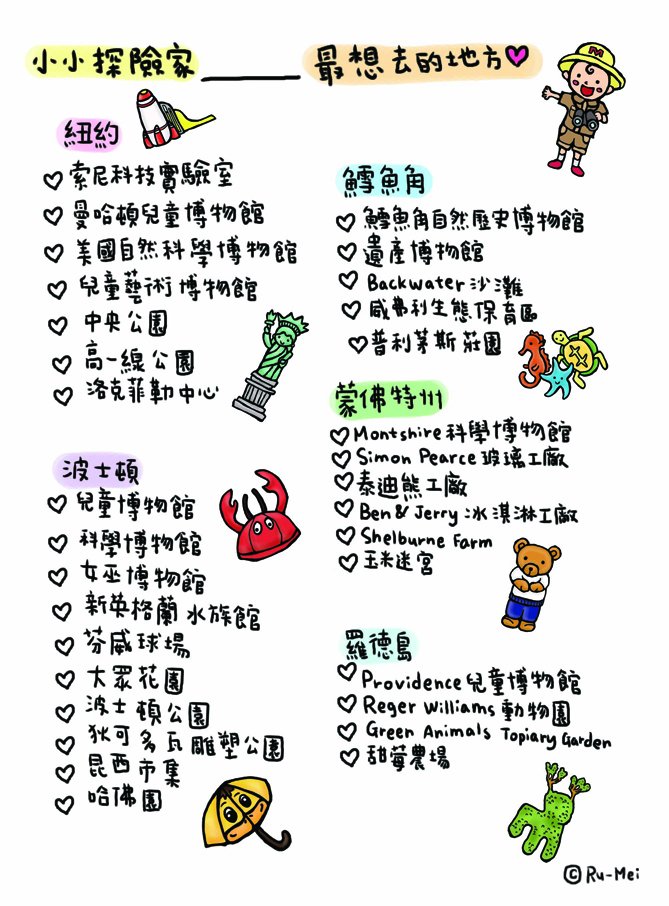 小小探險家______最想去的地方♥
M
紐約
♡索尼科技實驗室
♡曼哈頓兒童博物館
♡美國自然科學博物館
♡兒童藝術博物館
♡中央公園
♡高一線公園
♡洛克菲勒中心
波士頓
♡兒童博物館
♡科學博物館
♡女巫博物館
♡新英格蘭水族館
♡芬威球場
♡大眾花園
♡波士頓公園
♡狄可多瓦雕塑公園
♡昆西市集
♡哈佛園
鱈魚角
♡鱈魚角自然歷史博物館
♡遺產博物館
♡Backwater沙灘
♡威弗利生態保育區
♡普利茅斯莊園
蒙佛特州
♡Montshire科學博物館
♡Simon Pearce玻璃工廠
♡泰迪熊工廠
♡Ben & Jerry冰淇淋工廠
♡Shelburne Farm
♡玉米迷宮
羅德島
♡Providence兒童博物館
♡Reger Williams動物園
♡Green Animals Topiary Garden
♡甜莓農場
©Ru-Mei